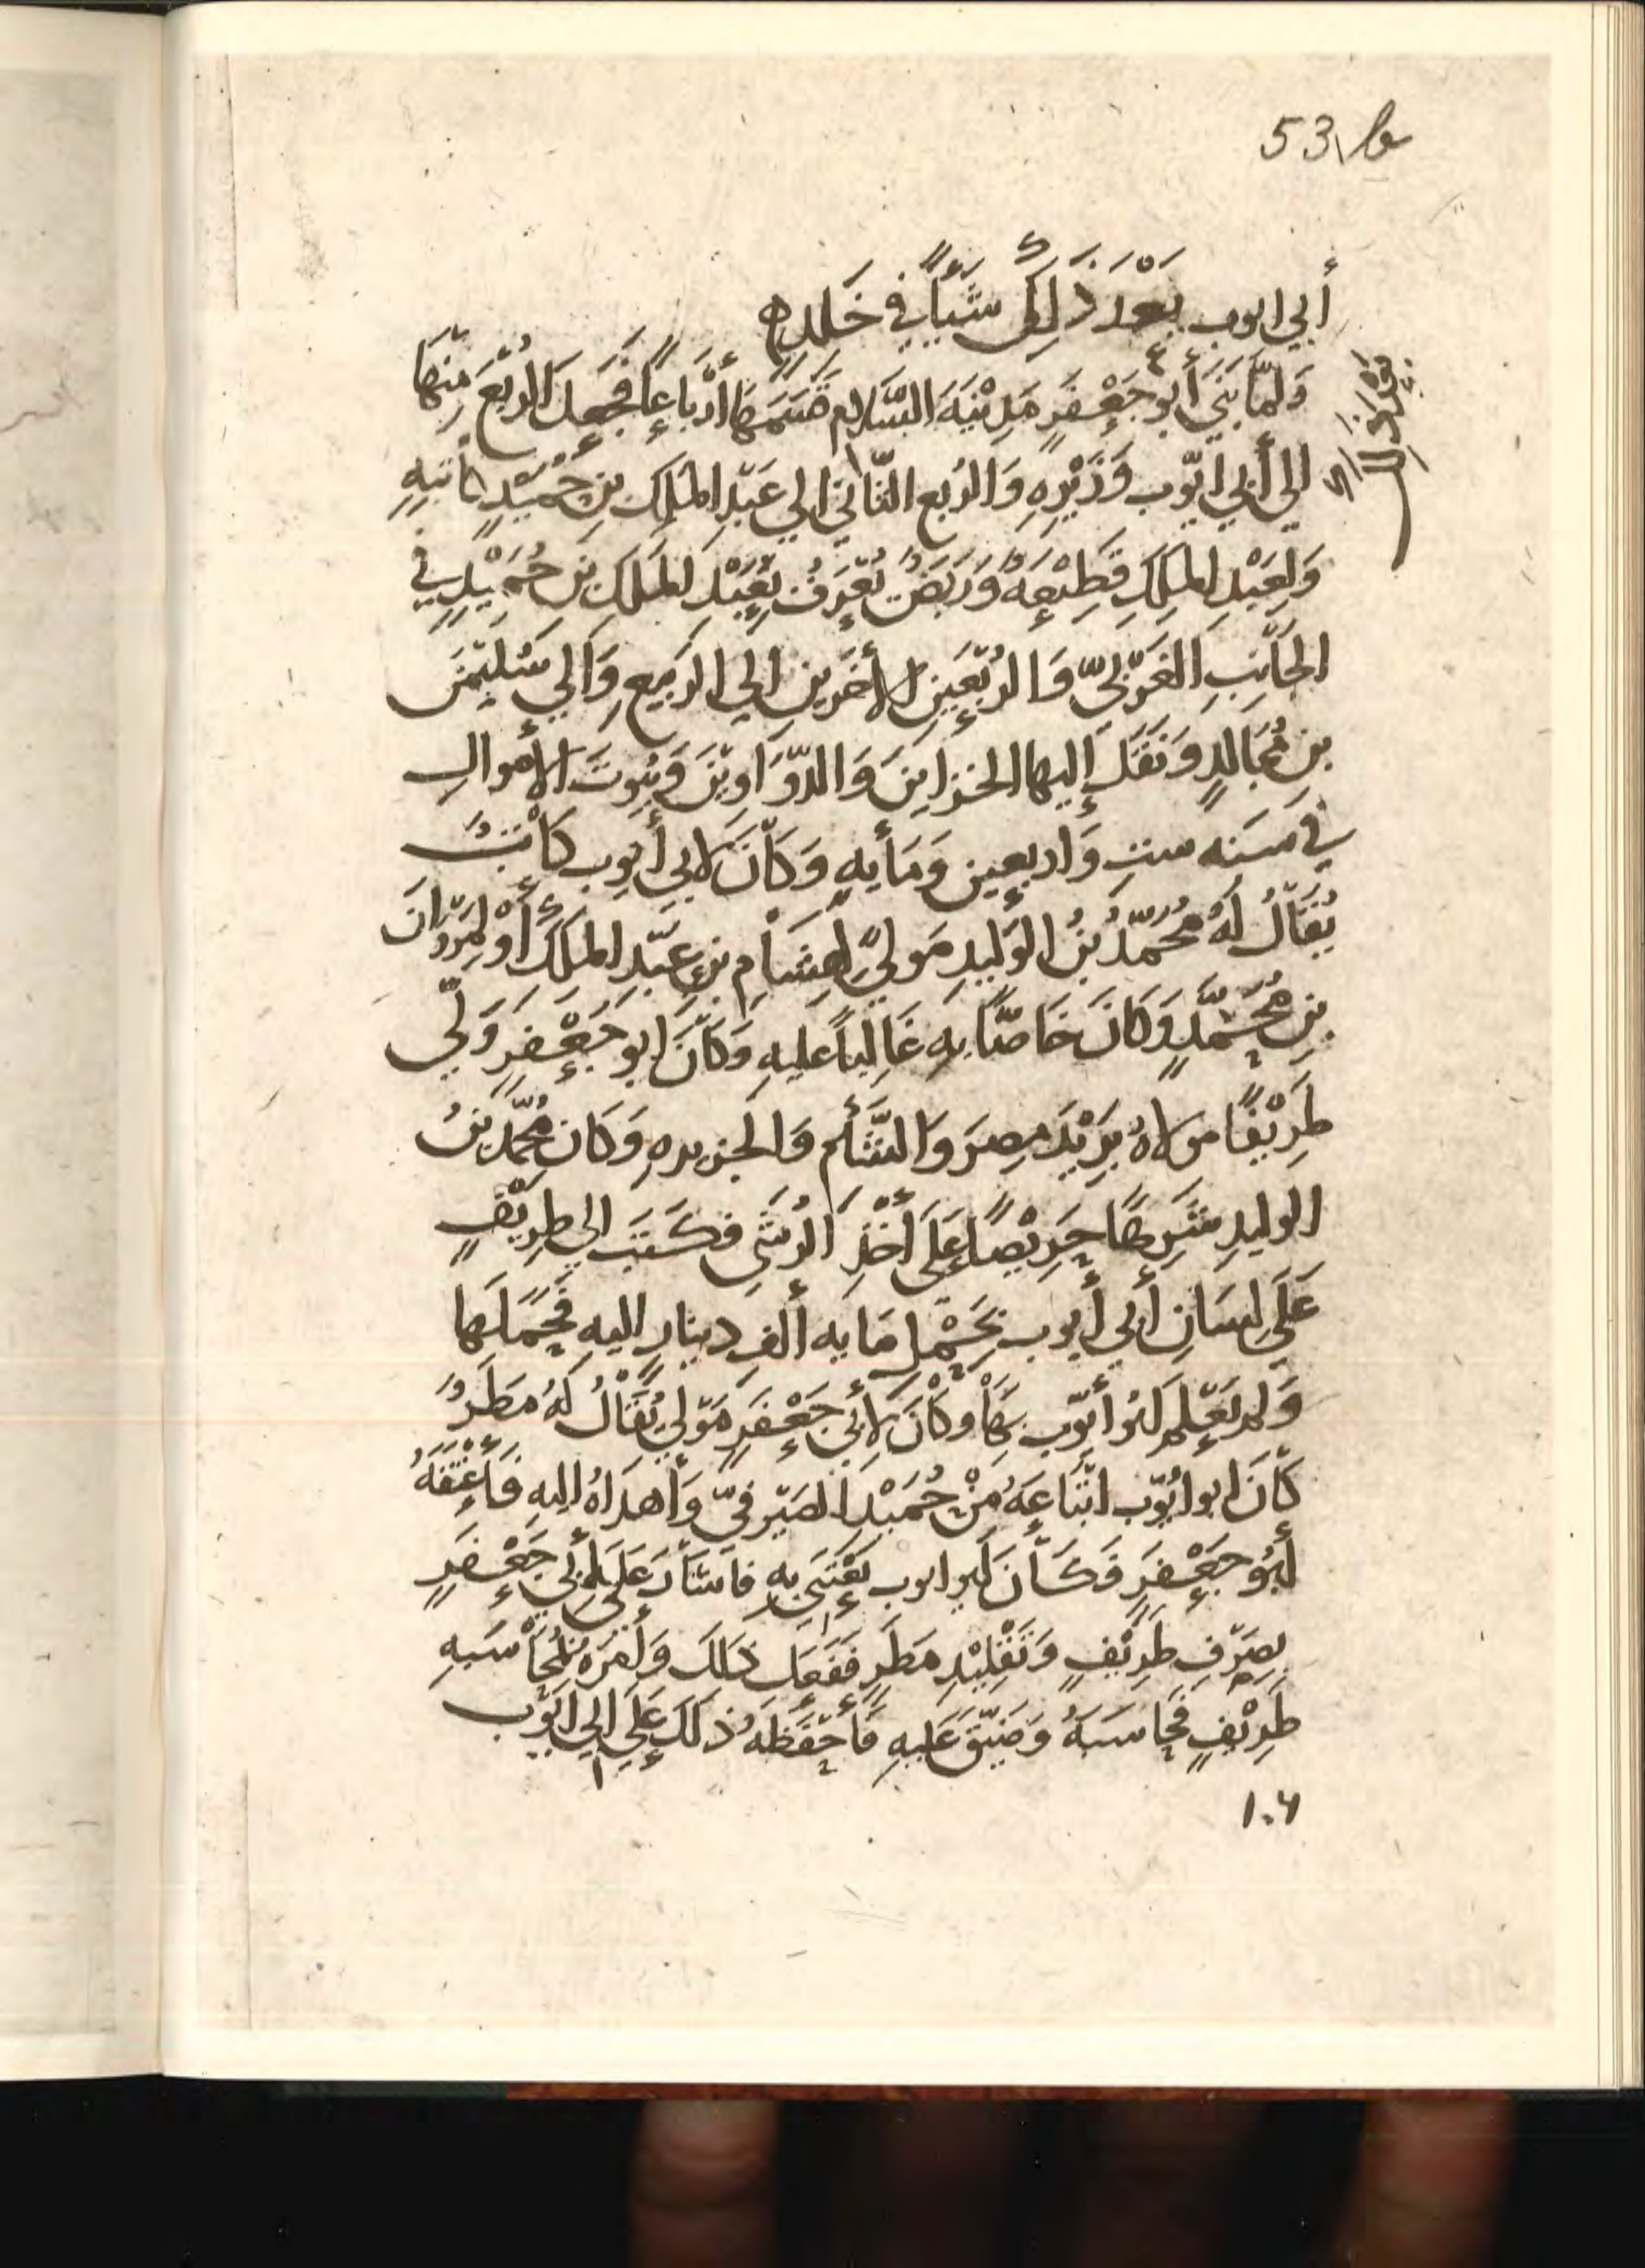 53/a
أبي ايوب بَعْدَ ذَلِكَ شَيْأً في خَلَدِهِ
وَلمّا بَنَي أبو جَعْفَرٍ مَدِيْنَةَ السَّلامِ قَسَمَهَا أرْبَاعًا فَجَعَلَ الرُبْعَ مِنْهَا
الي أبي ايّوب وَزِيْرِهِ وَالرُبع الثّاني الي عَبْدِ المَلِكِ بنِ حُمَيْدٍ كاتبِهِ
وَلِعَبْدِ المَلِكِ قَطِيْعَةٌ وَرَبَضٌ تُعْرَفُ بِعَبْدِ المَلِكِ بنِ حُمَيْدٍ في
الجَانِبِ الغَرْبِيّ وَالرُبْعَينِ الأخَرَينِ الي الرَبيعِ وَالي سُليمَنَ
بنِ مُجَالدٍ وَنَقَلَ إليها الخزاينَ وَالدّوَاوِيْنَ وَبُيُوتَ الأموالِ
في سَنَه ستٍ وَاربعين وَمَأيهٍ وَكانَ لابي أيوب كَاتبٌ
يُقَالُ لَهُ مُحَمّدُ بنُ الوَليدِ مَوليً لِهِشَامِ بنِ عَبْدِ المَلِكِ أوْ لمَرْوَانَ
بنِ مُحَمّدٍ وَكانَ خَاصًّا بِهِ غَالِباً عليهِ وَكَانَ ابو جَعْفَرٍ وَلّي
طَرِيْفًا مولاهُ بَرِيْدَ مِصرَ وَالشَّأم وَالجزيرهِ وَكان مُحَمّد بنُ
الوليدِ شَرِهًا حَرِيْصًا عَلَي أخْذِ الرُشَي فكَتبَ الي طَرِيْفٍ
عَلَي لسَانِ أبي أيوب بحَمْلِ مَايه ألفِ دينارٍ اليه فَحَمَلَها
وَلم يَعْلم ابُو أيّوب بِهَا وَكانَ لأبي جَعْفَرٍ مَوْلي يُقَالُ لهُ مَطَرٌ
كَانَ ابو ايُوّب ابْتَاعَهُ مِنْ حُمَيْدٍ الصَيْرفيّ وَأهدَاهُ اليهِ فَأعْتَقَهُ
أبُو جَعْفَرٍ فَكَانَ ابو ايوب يَعْتَني بِهِ فاشَارَ عَلَي أبي جَعْفَرٍ
بِصَرْفِ طَرِيْفٍ وَتَقْلِيْدِ مَطَرٍ فَفَعَلَ ذلكَ وَأمَرَهُ بمُحَاسَبهِ
طَرِيْفٍ فَحَاسَبَهُ وَضَيّقَ عَليهِ فَأحْفَظَهُ ذلكَ عَلَي ابي ايّوب
١٠٦